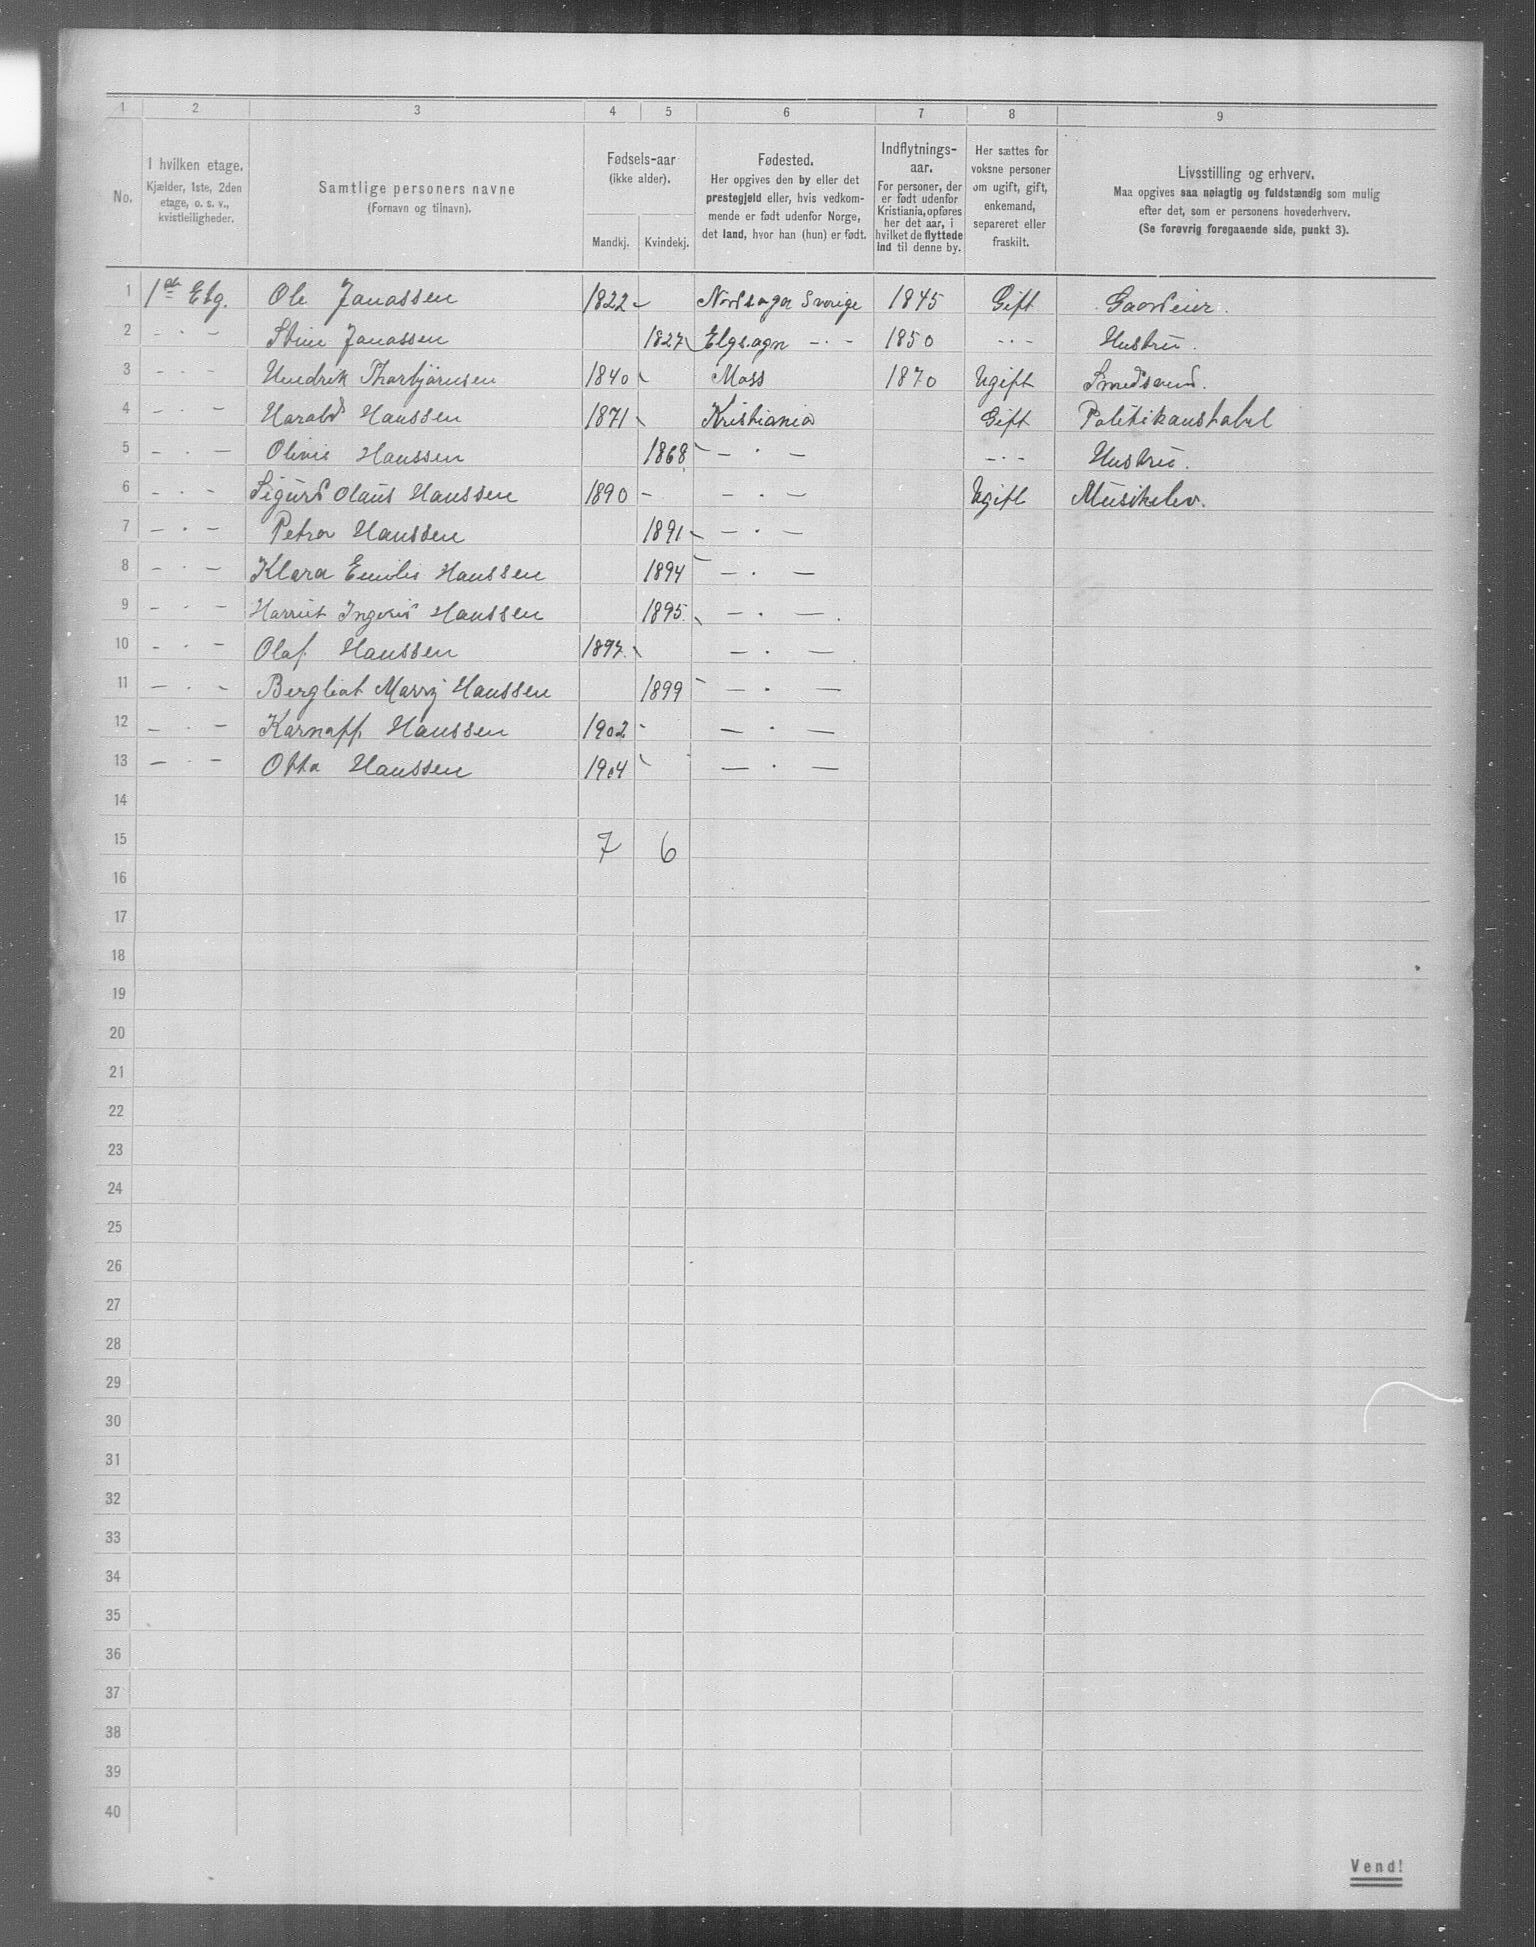 1 2 3 4 5 6 7 8 9
No.
I hvilken etage.
Kjælder, 1ste, 2den
etage, o. s. v.,
kvistleiligheder.
Samtlige personers navne
(Fornavn og tilnavn).
Fødsels-aar
(ikke alder).
Mandkj. Kvindekj.
Fødested.
Her opgives den by eller det
prestegjeld eller, hvis vedkom-
mende er født udenfor Norge,
det land, hvor han (hun) er født.
Indflytnings-
aar.
For personer, der
er født udenfor
Kristiania, opføres
her det aar, i
hvilket de flyttede
ind til denne by.
Her sættes for
voksne personer
om ugift, gift,
enkemand,
separeret eller
fraskilt.
Livsstilling og erhverv.
Maa opgives saa nøiagtig og fuldstændig som mulig
efter det, som er personens hovederhverv.
(Se forøvrig foregaaende side, punkt 3).
1 1ste Etg. Ole Janassen 1822 Sverige 1845 Gift Gaardeier.
2 – · – Stine Janassen 1827 – · – 1850 – · – Hustru.
3 – · – Hendrik Thorbjørnsen 1840 Moss 1870 Ugift Smedsvend.
4 – · – Harald Hanssen 1871 Kristiania Gift Politikonstabel
5 – · – Olivie Hanssen 1868 – · – – · – Hustru.
6 – · – Sigurd Olaus Hanssen 1890 – · – Ugift Musikelev.
7 – · – Petra Hanssen 1891 – · –
8 – · – Klara Emilie Hanssen 1894 – · –
9 – · – Harriet Ingerid Hanssen 1895 – · –
10 – · – Olaf Hanssen 1897 – · –
11 – · – Bergliot Marry Hanssen 1899 – · –
12 – · – Hanssen 1902 – · –
13 – · – Otto Hanssen 1904 – · –
14
15 7 6
16
17
18
19
20
21
22
23
24
25
26
27
28
29
30
31
32
33
34
35
36
37
38
39
40
Vend!